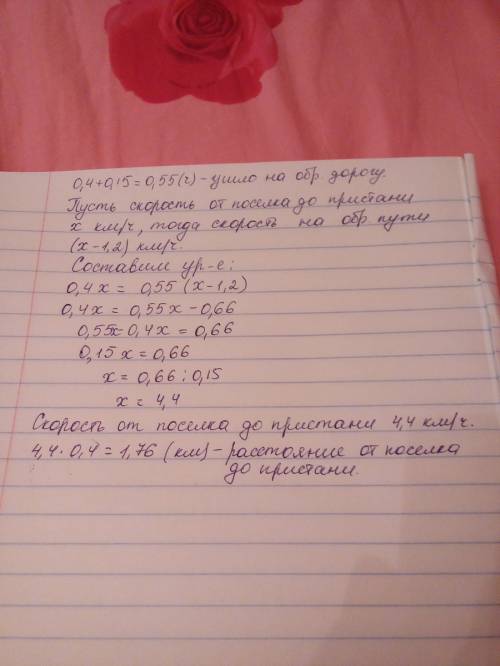 0,4+0,15=0,55(г) - ушло на обр дорогу.
Пусть скорость от поселка до пристани
х км/ч, тогда скорость на обр пути
(х-1,2) км/ч.
Составим ур-е:
0,4х = 0,55 (х-1,2)
0,4х = 0,55х - 0,66
0,55х-0,4х = 0,66
0,15х = 0,66
х = 0,66 : 0,15
х = 4,4
Скорость от поселка до пристани 4,4 км/ч.
4,4 · 0,4 = 1,76 (км) - расстояние от поселка
до пристани.